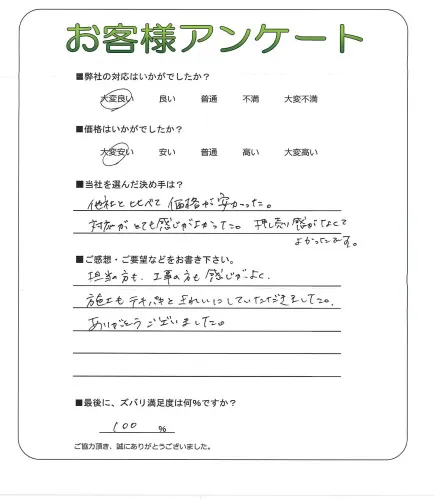 お客様アンケート
■弊社の対応はいかがでしたか？
大変良い 良い 普通 不満 大変不満
■価格はいかがでしたか？
大変安い 安い 普通 高い 大変高い
■当社を選んだ決め手は？
他社と比べて価格が安かった。
対応がとても感じがよかった。押し売り感がなくて
よかったです。
■ご感想・ご要望などをお書き下さい。
担当の方も、工事の方も感じがよく、
施工もテキパキときれいにしていただきました。
ありがとうございました。
■最後に、ズバリ満足度は何％ですか？
100 ％
ご協力頂き、誠にありがとうございました。